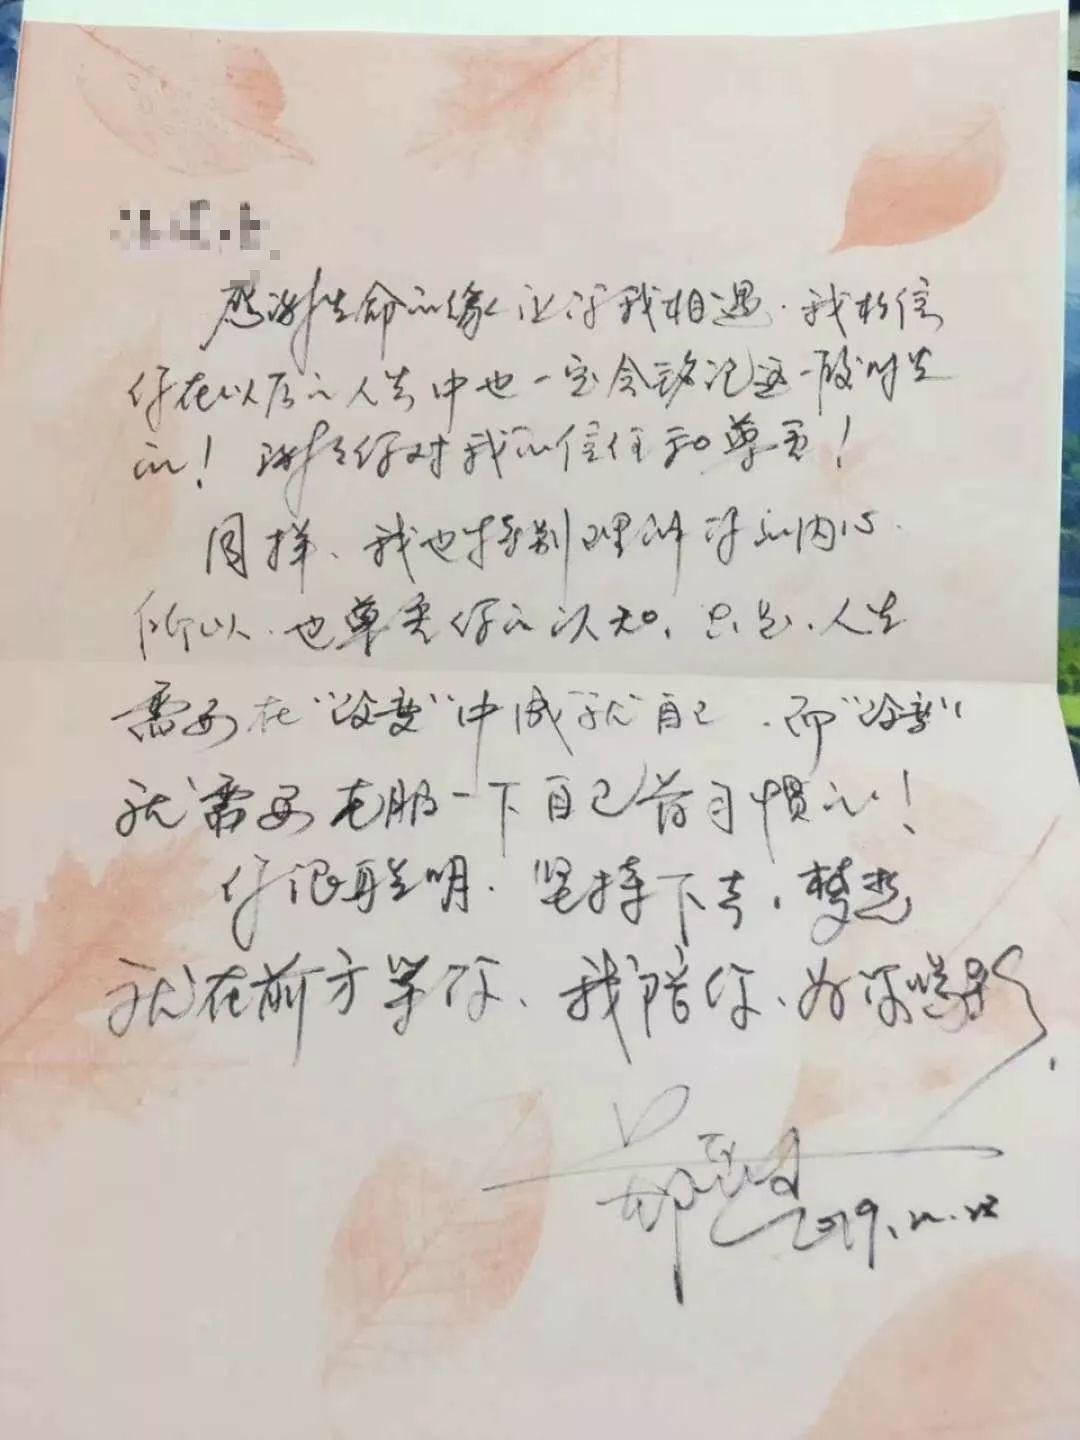 感谢生命的缘让你我相遇.我相信
你在以后的人生中也一定会铭记这一段时光
的！谢谢你对我的信任和尊重！
同样、我也特别理解你的内心.
所以.也尊重你的认知.只是.人生
需要在“改变”中成就自己.而“改变”
就需要克服一下自己前习惯的！
你很聪明.坚持下去,梦想
就在前方等你、我陪你、为你喝彩
2019.